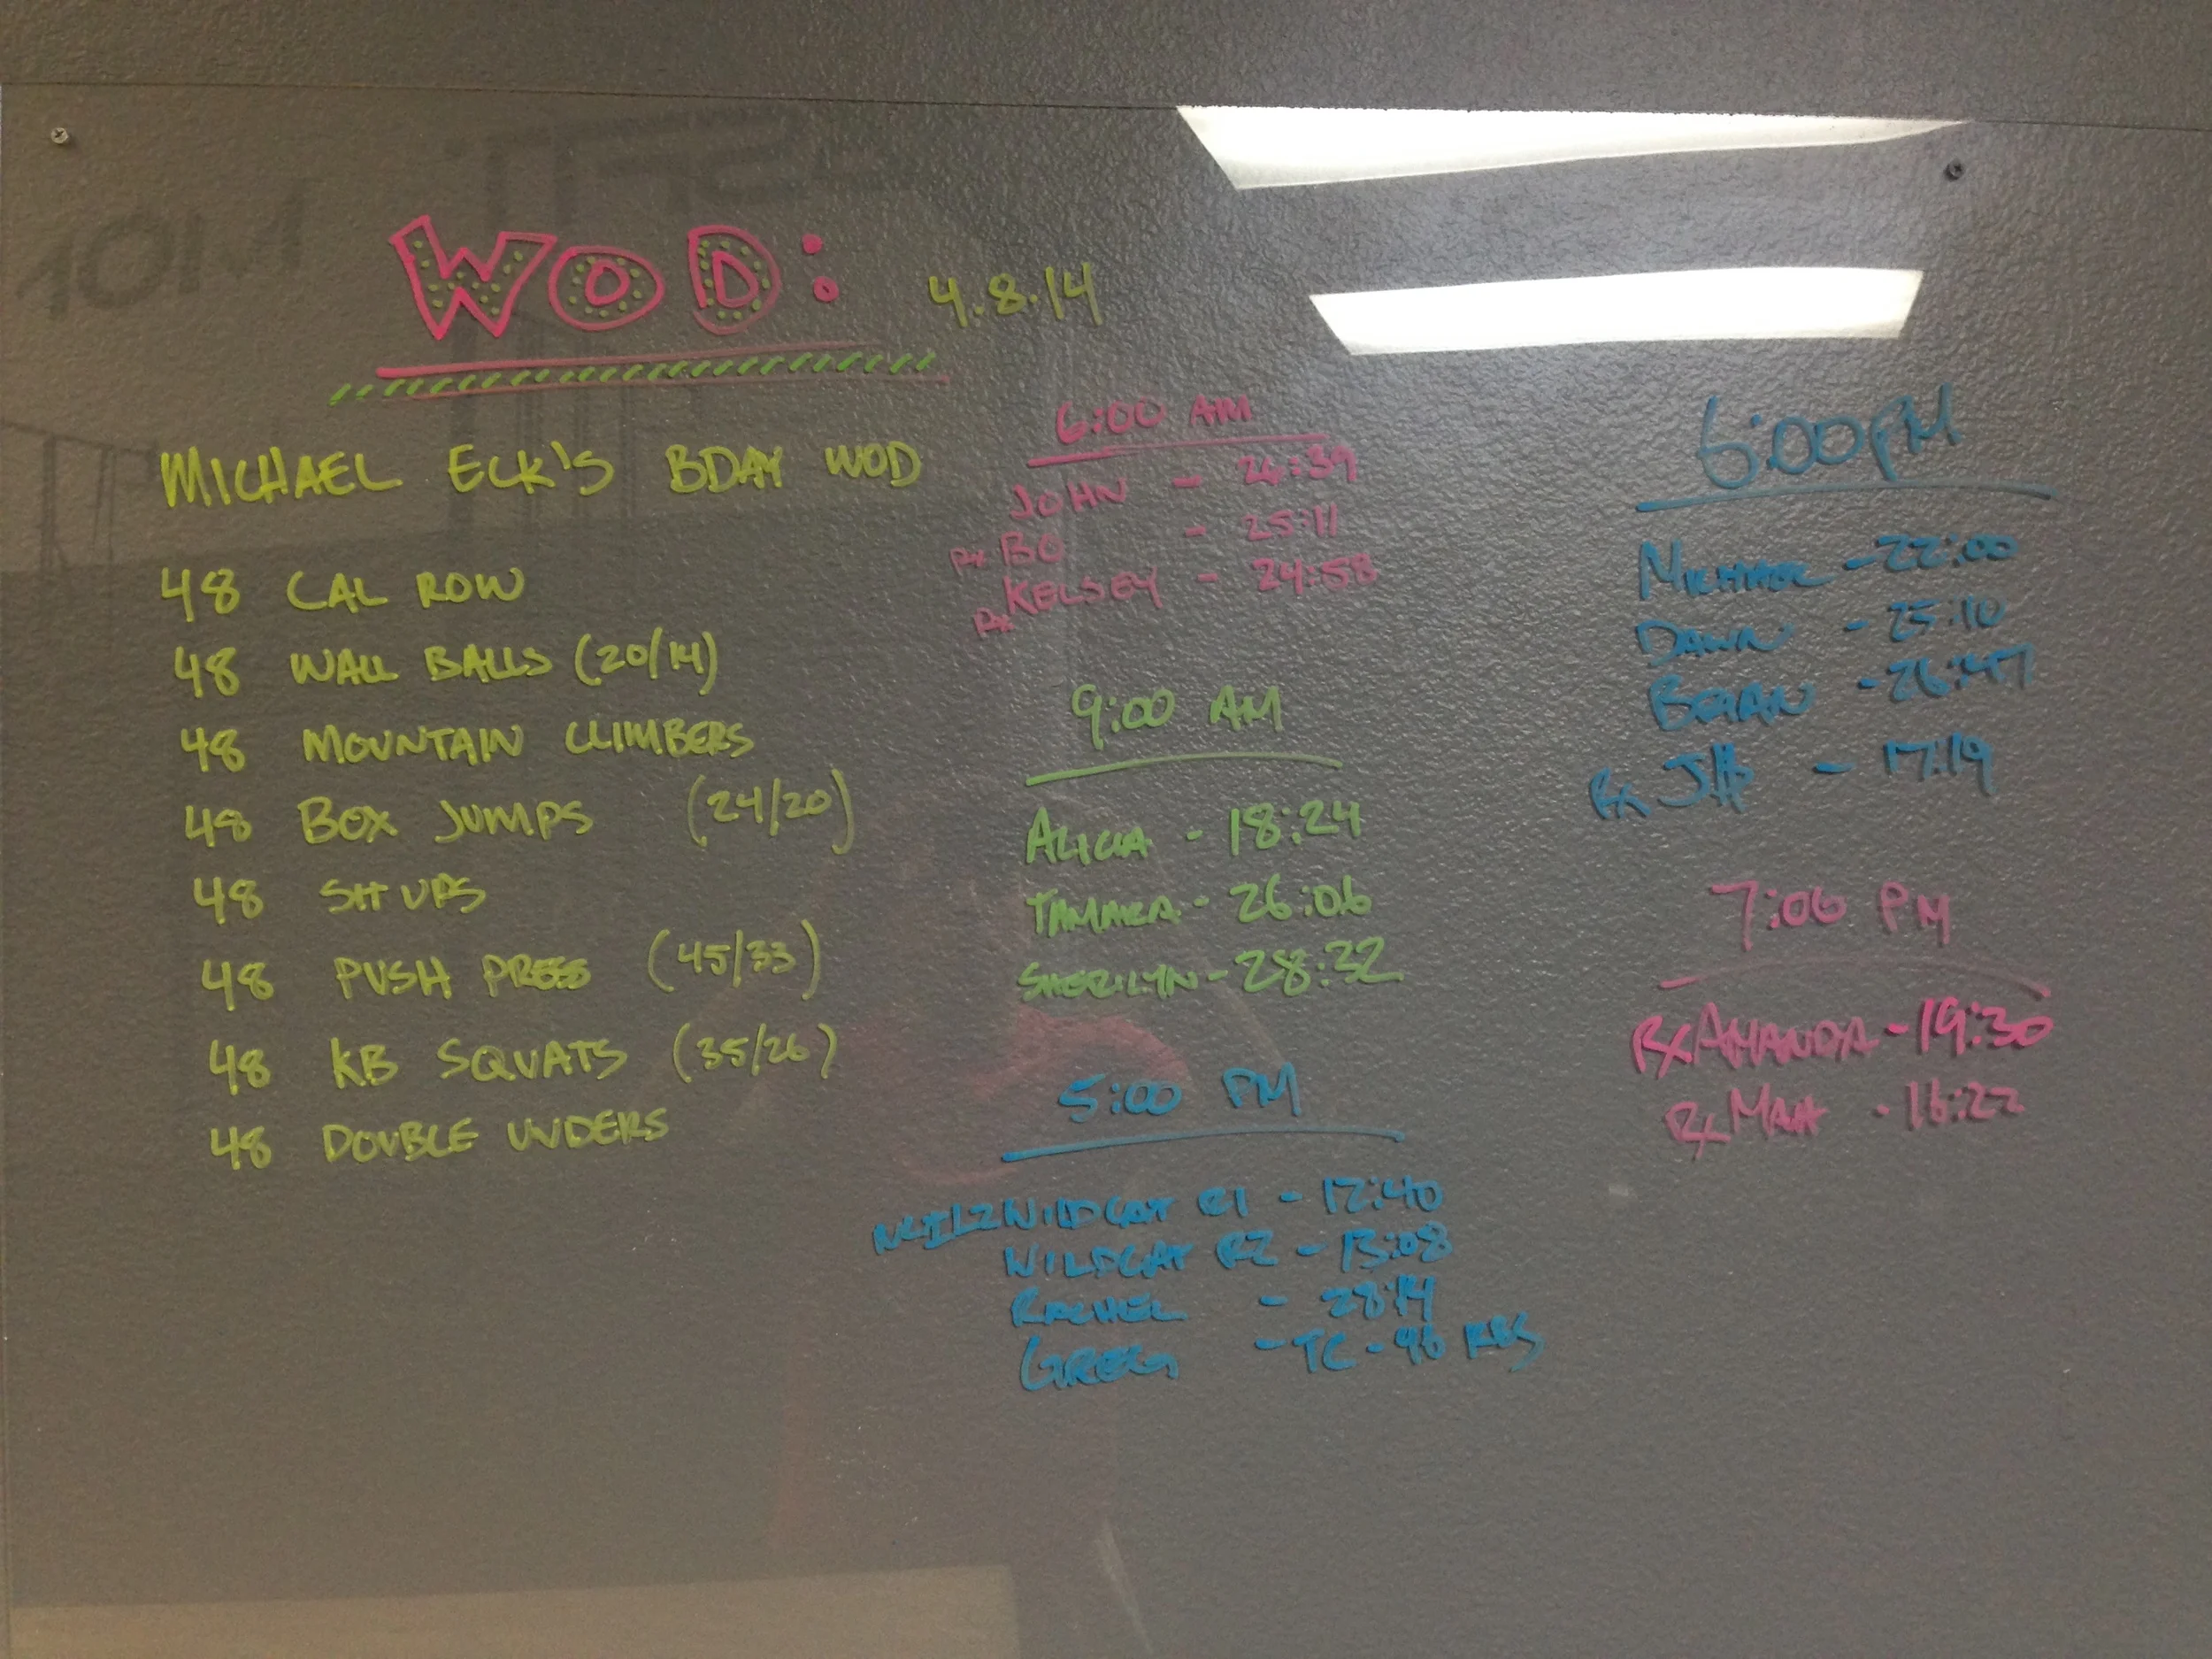 WOD: 4.8.14
MICHAEL ECK'S BDAY WOD
48 CAL ROW
48 WALL BALLS (20/14)
48 MOUNTAIN CLIMBERS
48 BOX JUMPS (24/20)
48 SIT UPS
48 PUSH PRESS (45/33)
48 KB SQUATS (35/26)
48 DOUBLE UNDERS
6:00 AM
JOHN - 26:39
Rx BO - 25:11
Rx KELSEY - 24:58
9:00 AM
ALICIA - 18:24
TAMARA - 26:06
SHERILYN - 28:32
5:00 PM
WILDCAT R1 - 12:40
WILDCAT R2 - 13:08
RACHEL - 28:14
GREG - TC - 48 KBS
6:00 PM
MICHAEL - 22:00
DAWN - 25:10
BRIAN - 26:47
Rx - 17:19
7:00 PM
Rx AMANDA - 19:30
Rx MATT - 16:22